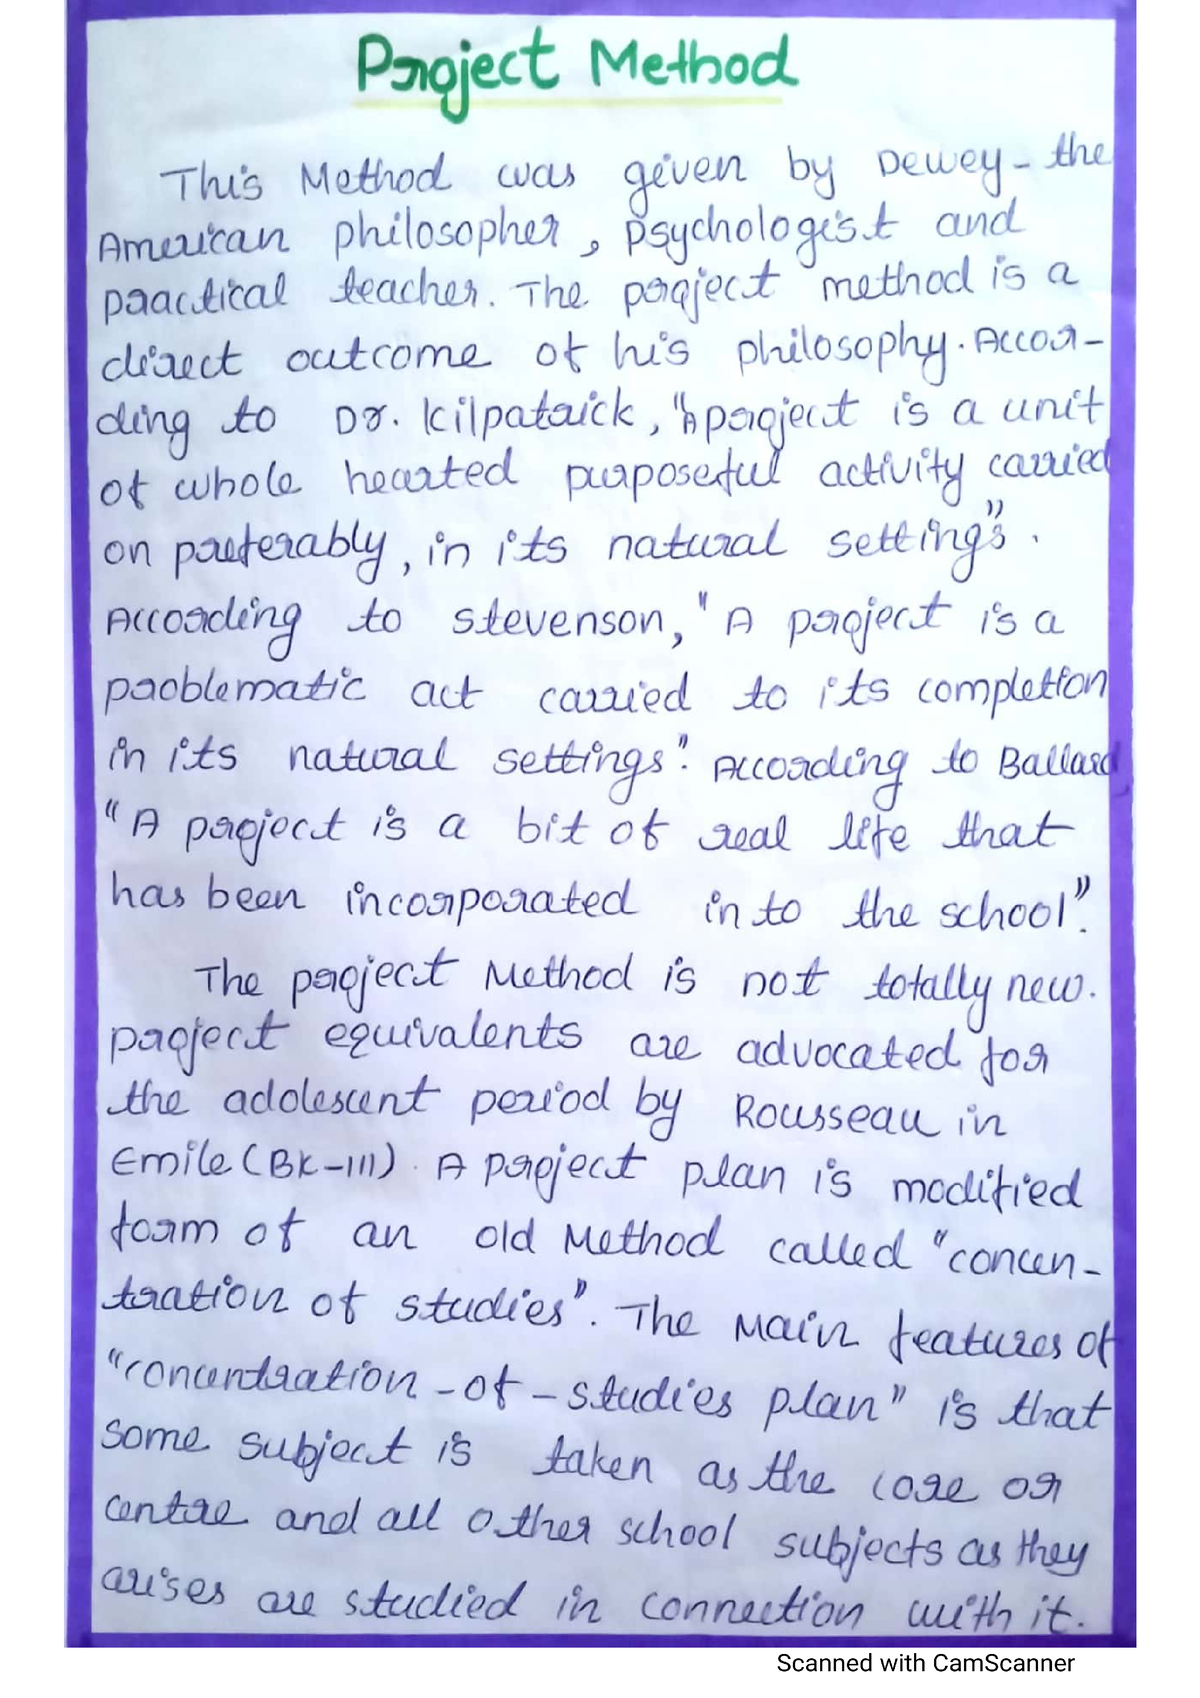 Project Method
This Method was given by Dewey - the
American philosopher, psychologist and
practical teacher. The project method is a
direct outcome of his philosophy. Accor-
ding to Dr. Kilpatrick, "A project is a unit
of whole hearted purposeful activity carried
on preferably, in its natural settings".
According to stevenson, "A project is a
problematic act carried to its completion
in its natural settings". According to Ballard
"A project is a bit of real life that
has been incorporated in to the school".
The project Method is not totally new.
project equivalents are advocated for
the adolescent period by Rousseau in
Emile (BK-III). A project plan is modified
form of an old Method called "concen-
tration of studies". The Main features of
"concentration - of - studies plan" is that
some subject is taken as the core or
centre and all other school subjects as they
arises are studied in connection with it.
Scanned with CamScanner